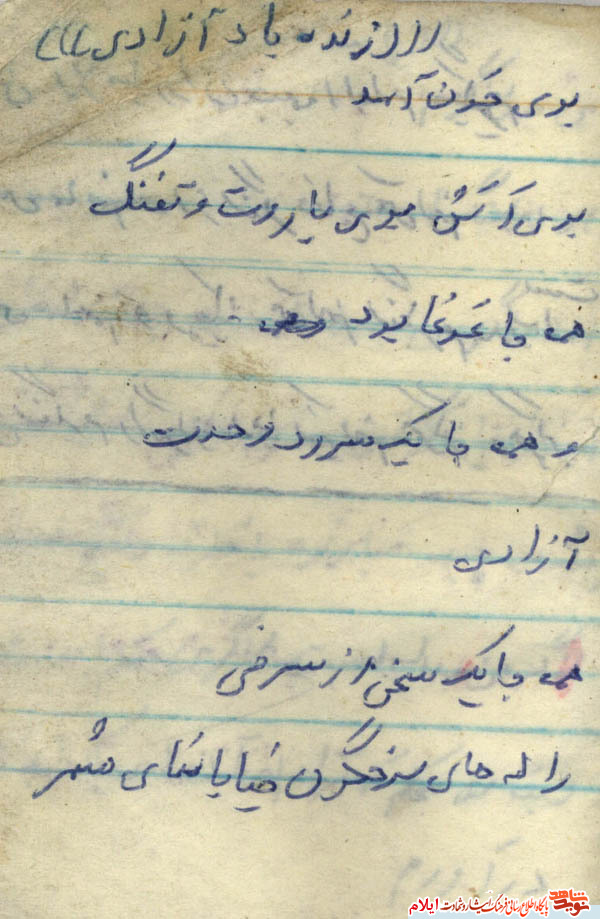 (((زنده باد آزادی)))
بوی خون آمد
بوی آتش بوی باروت و تفنگ
همه جا غوغا بود
و همه جا یک سرود وحدت
آزادی
همه جا یک سخن از سرخی
را له های سرخگون خیابانهای شهر
نوید شاهد
پایگاه اطلاع رسانی فرهنگ ایثار و شهادت ایلام